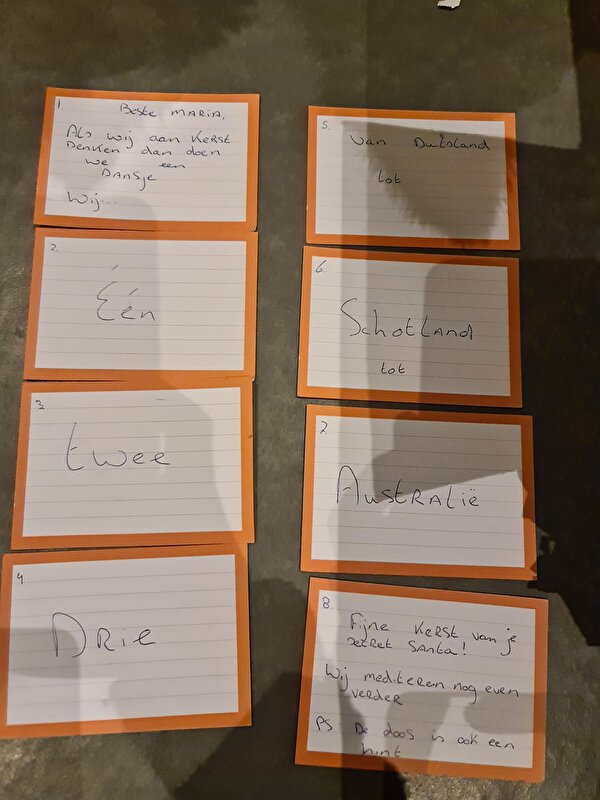 1
Beste MARIA,
Als wij aan KERST
DENKEN dan doen
we een
DANSJE
Wij...
2.
Één
3.
twee
4.
DRIE
5.
Van Duitsland
tot
6.
Schotland
tot
7.
Australië
8.
Fijne KERST van je
secret Santa!
Wij mediteren nog even
verder
PS: De doos is ook een
hint